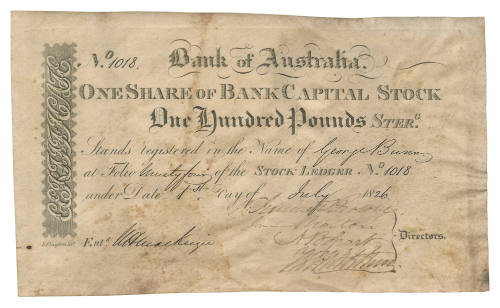 CERTIFICATE
N.º 1018. Bank of Australia.
ONE SHARE OF BANK CAPITAL STOCK
One Hundred Pounds STERG.
Stands registered in the Name of George Bunn
at Folio Ninety four of the STOCK LEDGER N.º 1018
under Date 1st Day of July 1826
Directors.
Entd.